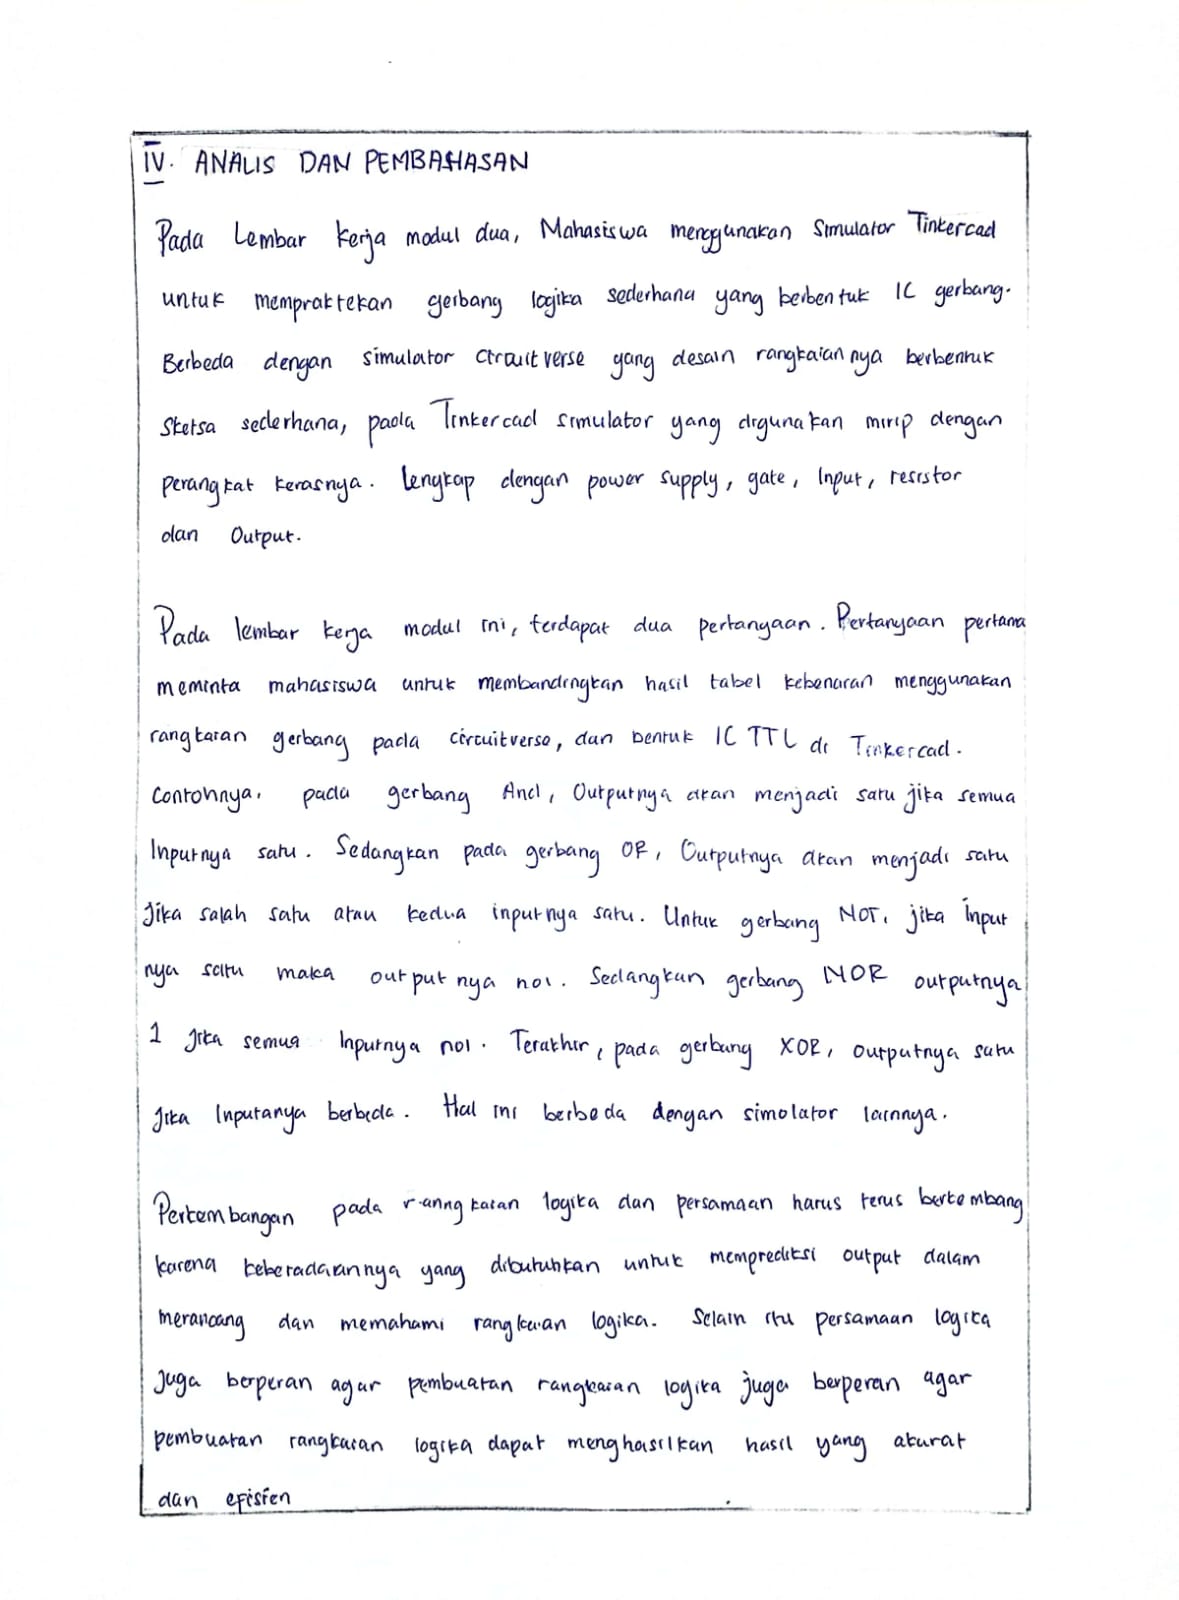 IV. ANALIS DAN PEMBAHASAN
Pada Lembar kerja modul dua, Mahasiswa menggunakan Simulator Tinkercad
untuk mempraktekan gerbang logika sederhana yang berbentuk IC gerbang.
Berbeda dengan simulator Circuitverse yang desain rangkaiannya berbentuk
Sketsa sederhana, pada Tinkercad simulator yang digunakan mirip dengan
perangkat kerasnya. Lengkap dengan power supply, gate, Input, resistor
dan Output.
Pada lembar kerja modul ini, terdapat dua pertanyaan. Pertanyaan pertama
meminta mahasiswa untuk membandingkan hasil tabel kebenaran menggunakan
rangkaian gerbang pada circuitverse, dan bentuk IC TTL di Tinkercad.
Contohnya, pada gerbang And, Outputnya akan menjadi satu jika semua
Inputnya satu. Sedangkan pada gerbang OR, Outputnya akan menjadi satu
Jika salah satu atau kedua inputnya satu. Untuk gerbang NOT, jika Input
nya satu maka outputnya nol. Sedangkan gerbang NOR outputnya
1 jika semua Inputnya nol. Terakhir, pada gerbang XOR, outputnya satu
Jika Inputanya berbeda. Hal ini berbeda dengan simolator lainnya.
Perkembangan pada ranngkaian logika dan persamaan harus terus berkembang
karena keberadaannya yang dibutuhkan untuk memprediksi output dalam
merancang dan memahami rangkaian logika. Selain itu persamaan logika
Juga berperan agar pembuatan rangkaian logika juga berperan agar
pembuatan rangkaian logika dapat menghasilkan hasil yang akurat
dan efisien